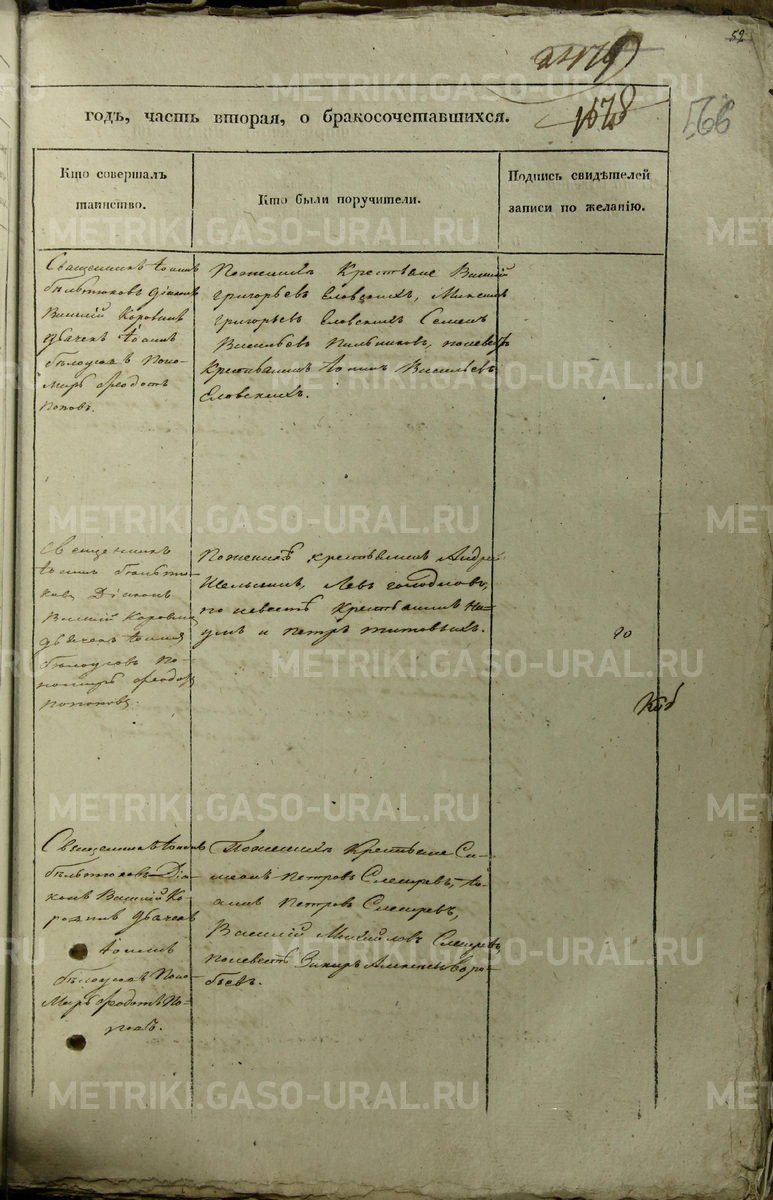 52
2479
1678
566
годъ, часть вторая, о бракосочетавшихся.
Кто совершалъ
таинство.
Кто были поручители.
Подпись свидѣтелей
записи по желанію.
Священникъ Іоаннъ
Діаконъ
Василій Коровинъ
дьячекъ Іоаннъ
Белоусовъ Поно-
марь Феодотъ
Поповъ.
Поженихѣ Крестьяне Василій
григорьевъ Еловскихъ, Максимъ
григорьевъ Еловскихъ Семенъ
Васильевъ Пильниковъ, поневестѣ
Крестьянинъ Іоаннъ Васильевъ
Еловскихъ.
Священникъ
Іоаннъ
Діаконъ
Василій Коровинъ
дьячекъ Іоаннъ
Белоусовъ По-
номарь Феодотъ
Поповъ.
Поженихѣ крестьянинъ Андрей
Шелыгинъ, Левъ голодновъ,
по невестѣ Крестьянинъ На-
умъ и петръ титовыхъ.
Священникъ Іоаннъ
Діа-
конъ Василій Ко-
ровинъ дьячекъ
Іоаннъ
Белоусовъ Поно-
марь Феодотъ По-
повъ.
Поженихѣ Крестьяне Си-
меонъ Петровъ Іо-
аннъ Петровъ
Василій Михайловъ
поневестѣ Захаръ Алексѣевъ Воро-
бьевъ.
METRIKI.GASO-URAL.RU